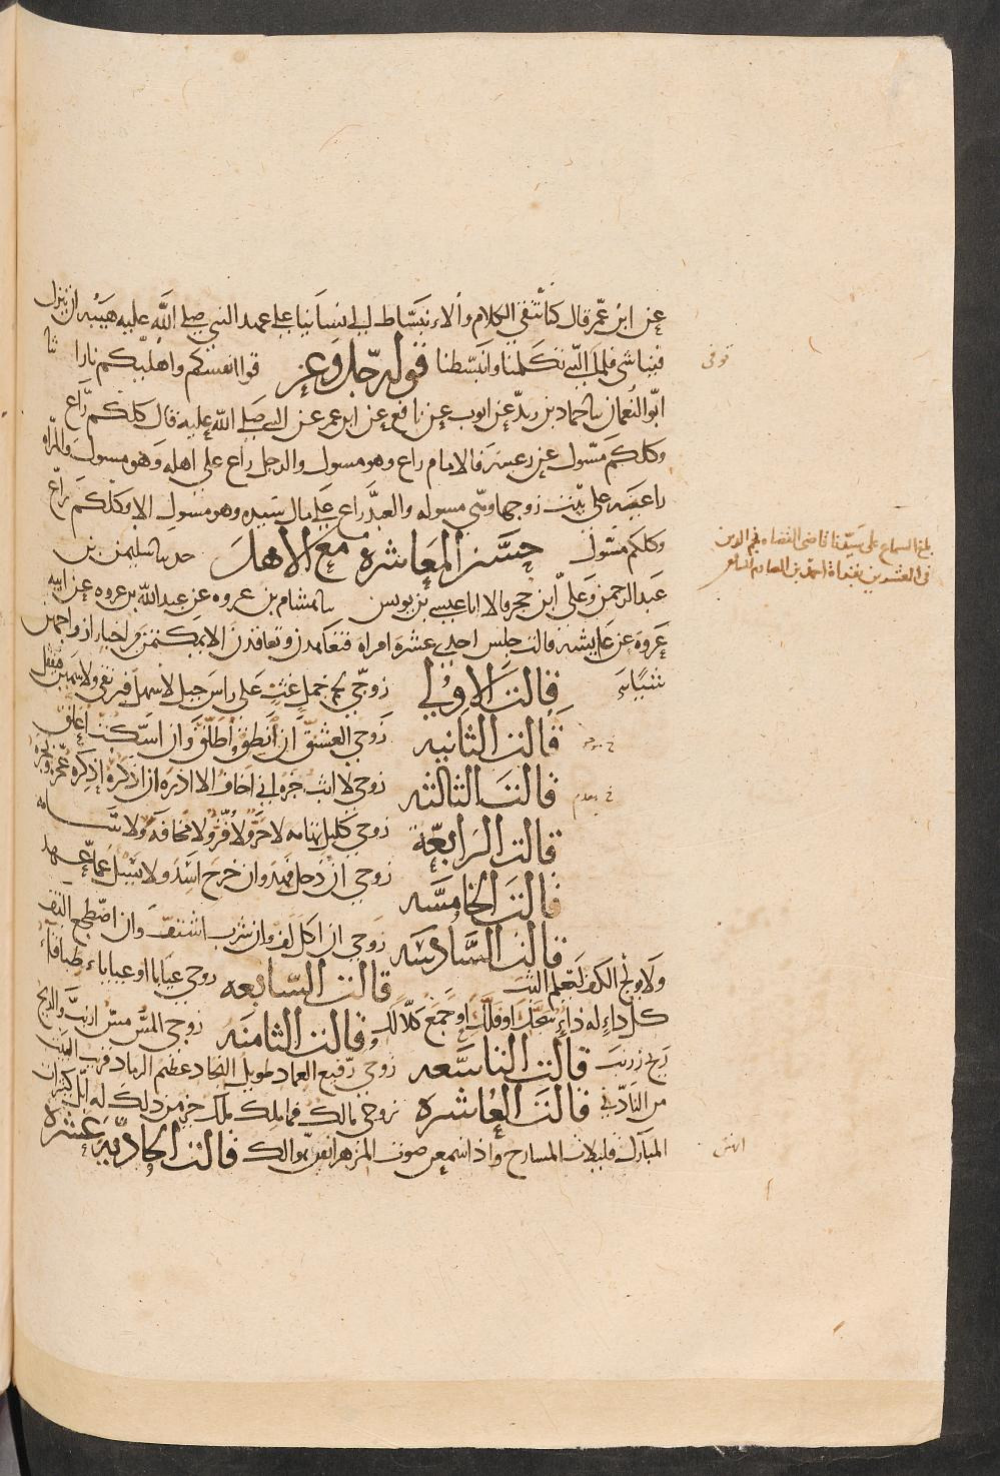 عن ابن عمر قال كنا نتقي الكلام والانبساط الى نسائنا على عهد النبي صلى الله عليه هيبة ان ينزل
فينا شي فلما النبي تكلمنا وانبسطنا قوله جل وعز قوا انفسكم واهليكم نارا ثنا
توفي
ابو النعمان ثنا حماد بن زيد عن ايوب عن نافع عن ابن عمر عن النبي صلى الله عليه قال كلكم راع
وكلكم مسول عن رعيته فالامام راع وهو مسول والرجل راع على اهله وهو مسول والمراه
راعيه على بيت زوجها وهي مسوله والعبد راع على مال سيده وهو مسول الا وكلكم راع
وكلكم مسول حسن المعاشرة مع الاهل حدثنا سليمن بن
بلغ السماع على سيدنا قاضي القضاه نجم الدين
عبد الرحمن وعلي ابن حجر قالا انا عيسى بن يونس ثنا هشام بن عروه عن عبد الله بن عروه عن ابيه
عروة عن عايشه قالت جلس احدى عشره امراه فتعاهدن وتعاقدن الا يكتمن من اخبار ازواجهن
شيئا قالت الاولى زوجي لحم جمل غث على راس جبل لا سهل فيرتقى ولا سمين فينتقل
قالت الثانيه
زوجي العشنق ان انطق اطلق وان اسكت اعلق
قالت الثالثه زوجي لا ابث خبره اني اخاف الا اذره ان اذكره اذكر عجره وبجره
قالت الرابعة زوجي كليل تهامه لا حر ولا قر ولا مخافة ولا سامه
قالت الخامسه زوجي ان دخل فهد وان خرج اسد ولا يسل عما عهد
قالت السادسه زوجي ان اكل لف وان شرب اشتف وان اضطجع التف
ولا يولج الكف ليعلم البث قالت السابعه زوجي غيايا او عياياء طباقا
كل داء له داء شجك او فلك او جمع كلا لك قالت الثامنه زوجي المس مس ارنب والريح
ريح زرنب قالت التاسعه زوجي رفيع العماد طويل النجاد عظيم الرماد قريب البيت
من الناد قالت العاشره زوجي مالك فما ملك مالك خير من ذلك له ابل كثيرات
المبارك قليلات المسارح واذا سمعن صوت المزهر ايقن هوالك قالت الحادية عشره